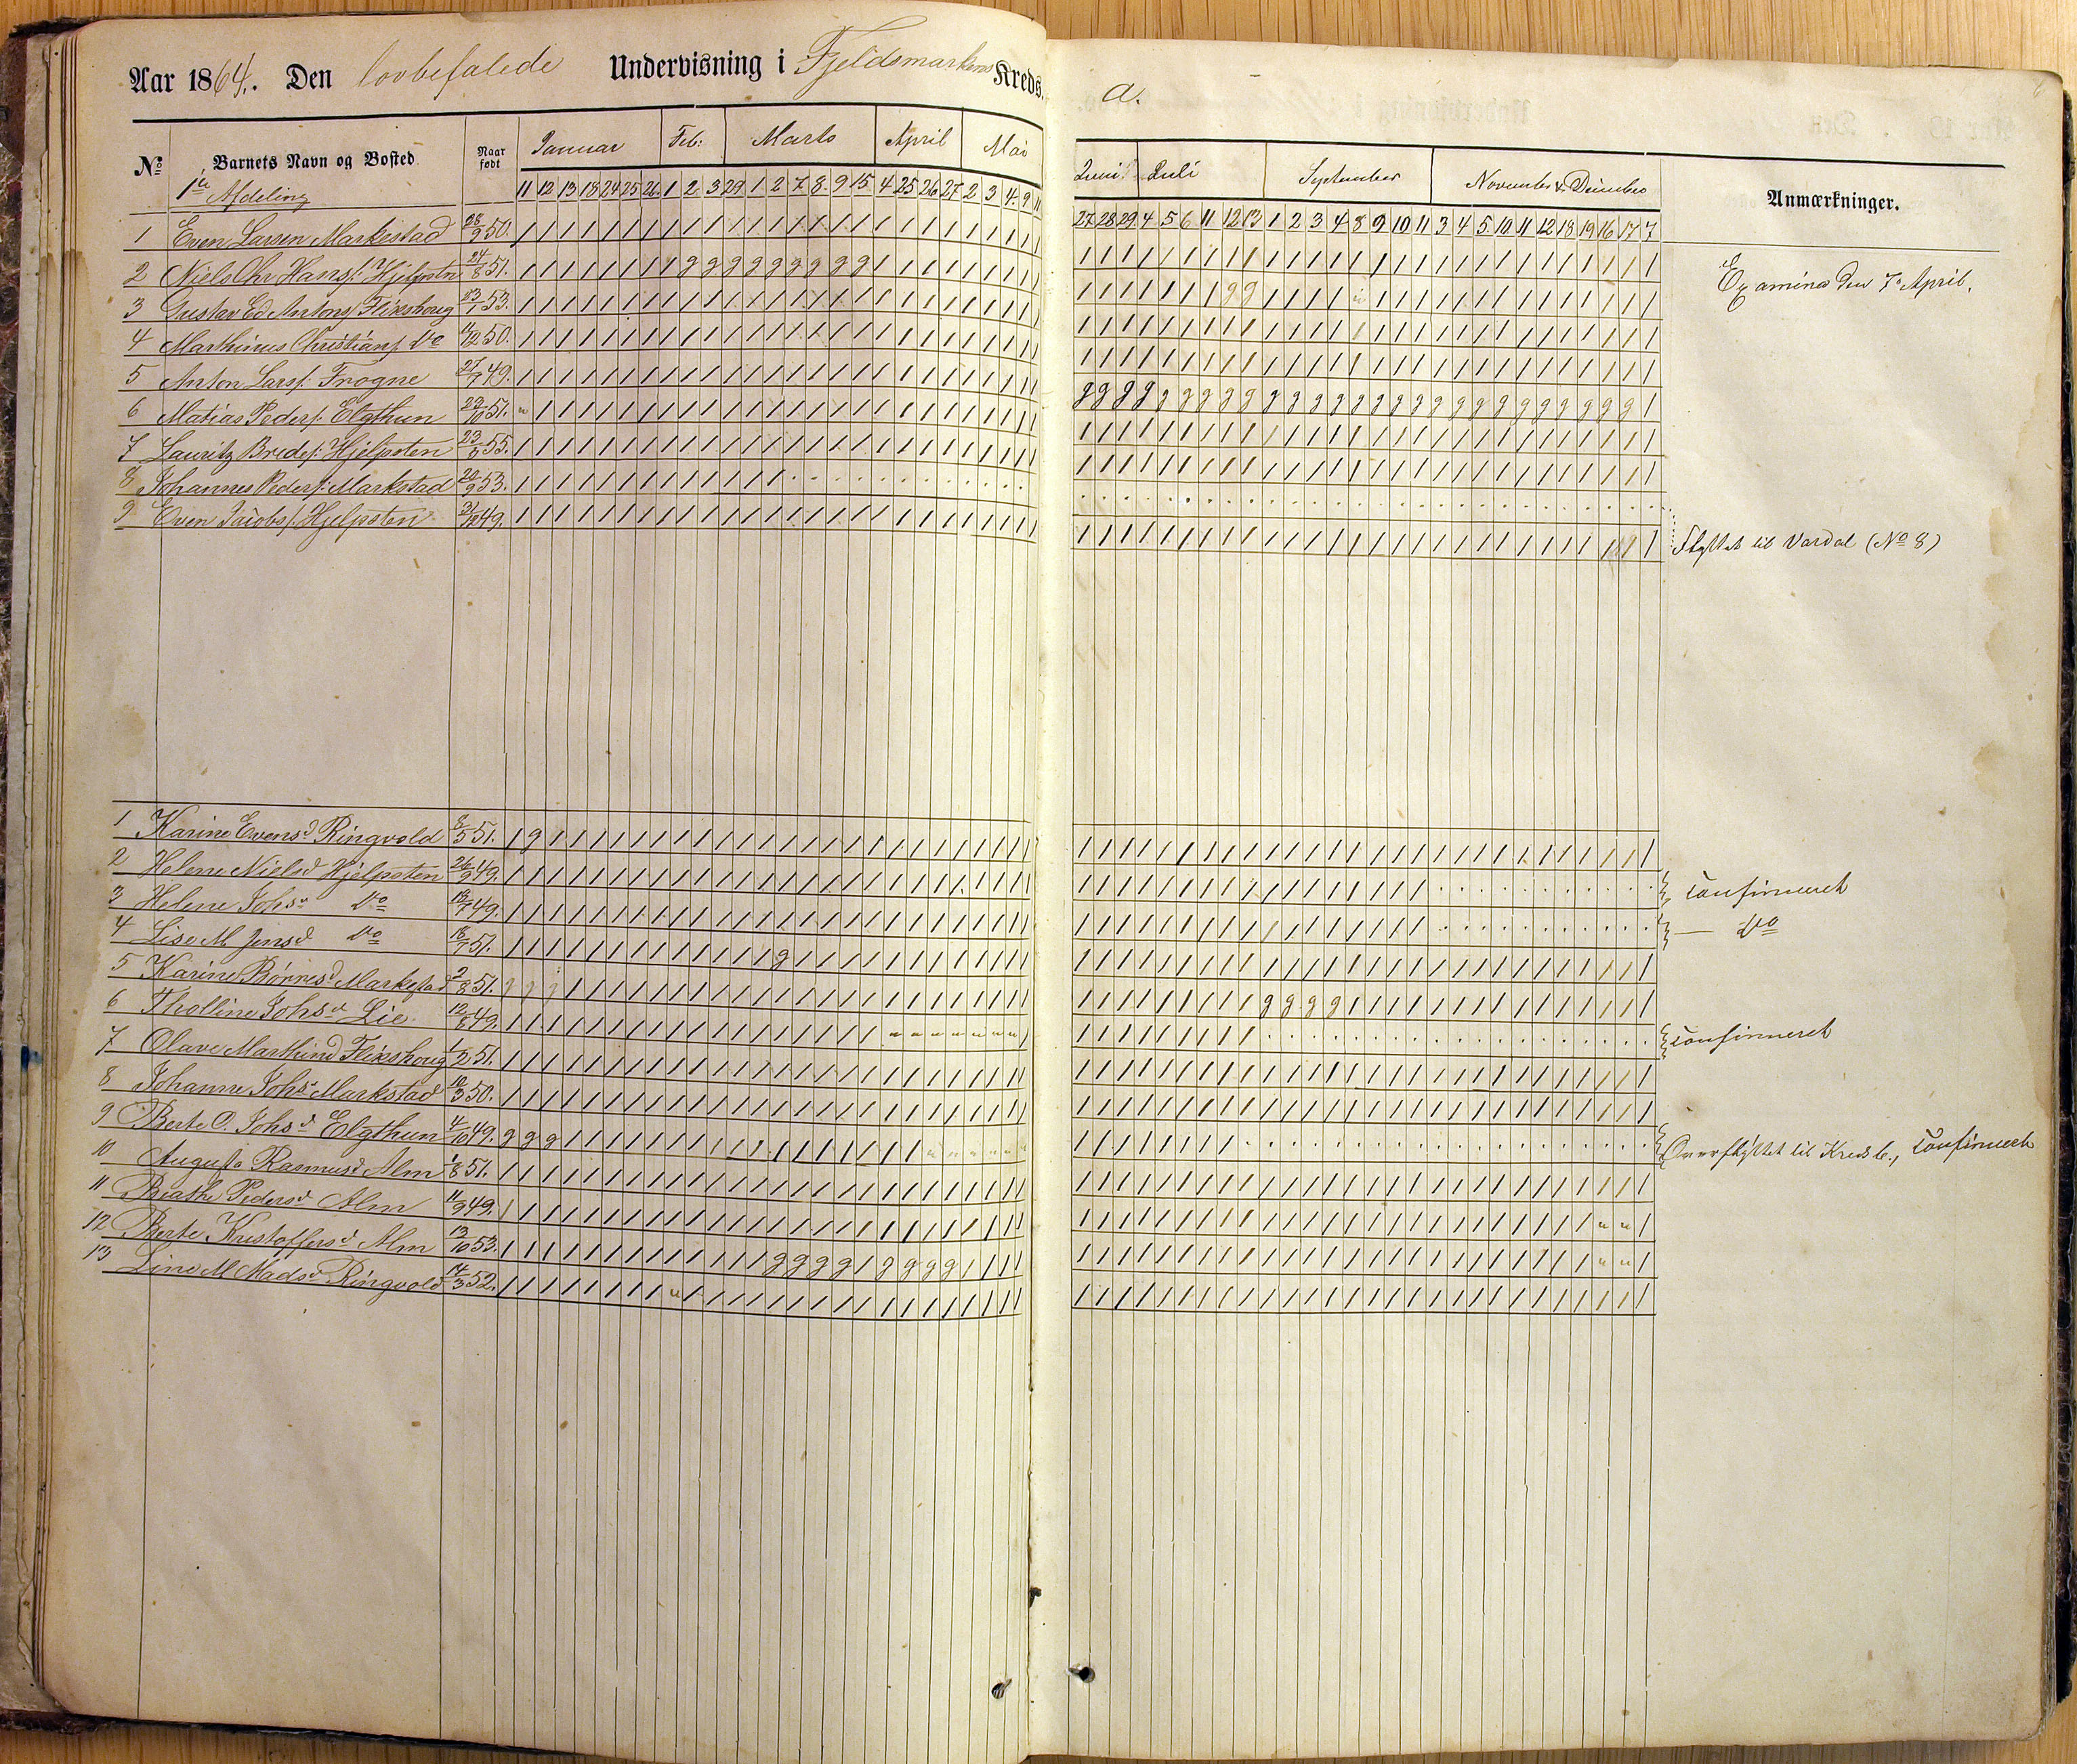 Aar 1864. Den lovbefalede Undervisning i Fjeldsmarkens Kreds. a.
No Barnets Navn og Bosted Naar født Januar Feb: Marts April Mai
1ste Afdeling 11 12 13 18 24 25 26 1 2 3 29 1 2 7 8 9 15 4 25 26 27 2 3 4 9 11
Juni Juli September November & December Anmærkninger.
27 28 29 4 5 6 11 12 13 1 2 3 4 8 9 10 11 3 4 5 10 11 12 18 19 16 17 7
1 Even Larsen Markestad 28/9 50.
2 Niels Chr Hanss: Hjelpsten 24/8 51.
Examina den 7de April.
3 Gustav Ed Antons Flikshoug 23/1 53.
4 Marthinus Christians Do 11/12 50.
5 Anton Larss: Frogne 27/7 49.
6 Matias Peders: Elgthun 29/10 51.
7 Lauritz Bredes: Hjelpsten 23/8 55.
8 Johannes Peders: Markstad 20/9 53.
9 Even Jacobs: Hjelpsten 31/12 49.
Flyttet til Vardal (No 8)
1 Karine Evensd Ringvold 8/5 51.
2 Helene Nielsd Hjelpsten 26/9 49.
Confirmeret
3 Helene Johsd Do 18/7 49.
— Do
4 Lise M Jensd Do 18/7 51.
5 Karine Børnesd Markestad 2/8 51.
6 Tholline Johsd Lie 12/8 49.
Confirmeret
7 Olave Marthind Flikshoug 1/2 51.
8 Johanne Johsd Markstad 10/3 50.
9 Berte O. Johsd Elgthun 4/10 49.
Overflyttet til Kreds b., Confirmeret
10 Augusta Rasmusd Alm 1/8 51.
11 Beathe Pedersd Alm 11/9 49.
12 Berte Kristoffersd Alm 13/10 53.
13 Line M Madsd Ringvold 14/3 52.